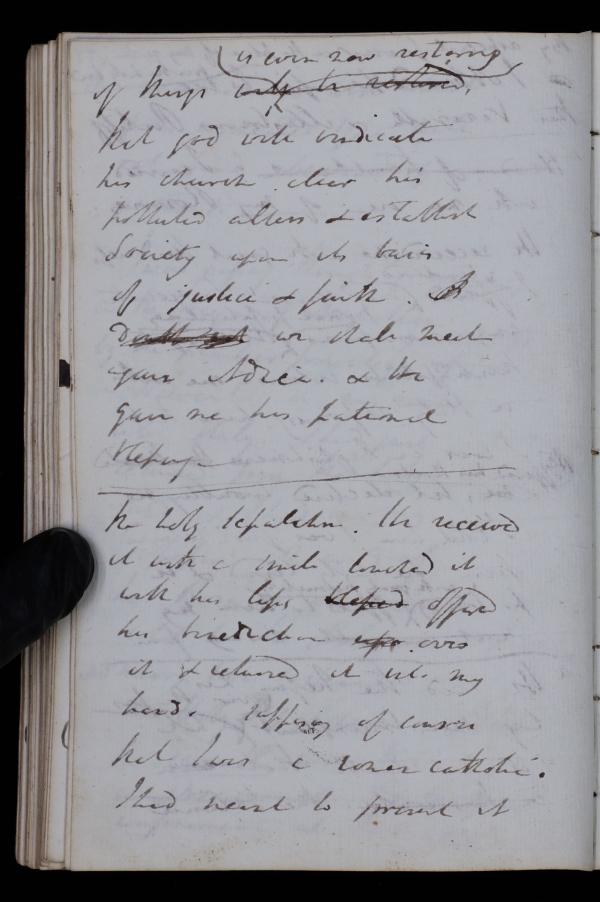 is even now restoring
of things will be restored,
that god will vindicate
his church clear his
polluted alters & establish
Society upon its basis
of justice & faith.
Doubt not we shall meet
again Adieu. & He
gave me his paternal
blessing
the holy Sepulchre. He received
it with a smile touched it
with his lips blessed offered
his benediction upon over
it & returned it into my
hands supposing of course
that I was a roman catholic.
I had meant to present it